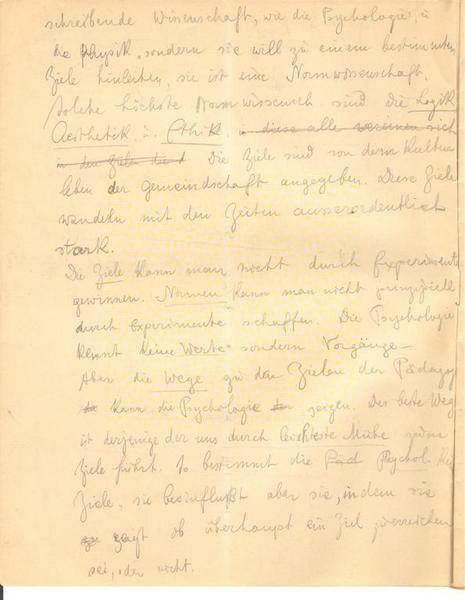 schreibende Wissenschaft, wie die Psychologie, u
die Physik, sondern sie will zu einem bestimmten
Ziele hinleiten, sie ist eine Normwissenschaft.
Solche höchste Normwissensch. sind die Logik
Aesthetik u. Ethik. in diese alle vereinen sich
in den Zielen die Die Ziele sind von dem Kultur
leben der Gemeinschaft angegeben. Diese Ziele
wandeln mit den Zeiten ausserordentlich
stark.
Die Ziele kann man nicht durch Experimente
gewinnen. Normen kann man nicht prinzipiell
durch Experimente schaffen. Die Psychologie
kennt keine Werte sondern Vorgänge –
Aber die Wege zu den Zielen der Pädagog
kann die Psychologie zeigen. Der beste Weg
ist derjenige der uns durch leichteste Mühe zum
Ziele führt. So bestimmt die Päd Psychol. kei
Ziele, sie beeinflußt aber sie, indem sie
zeigt ob überhaupt ein Ziel zu erreichen
sei, oder nicht.